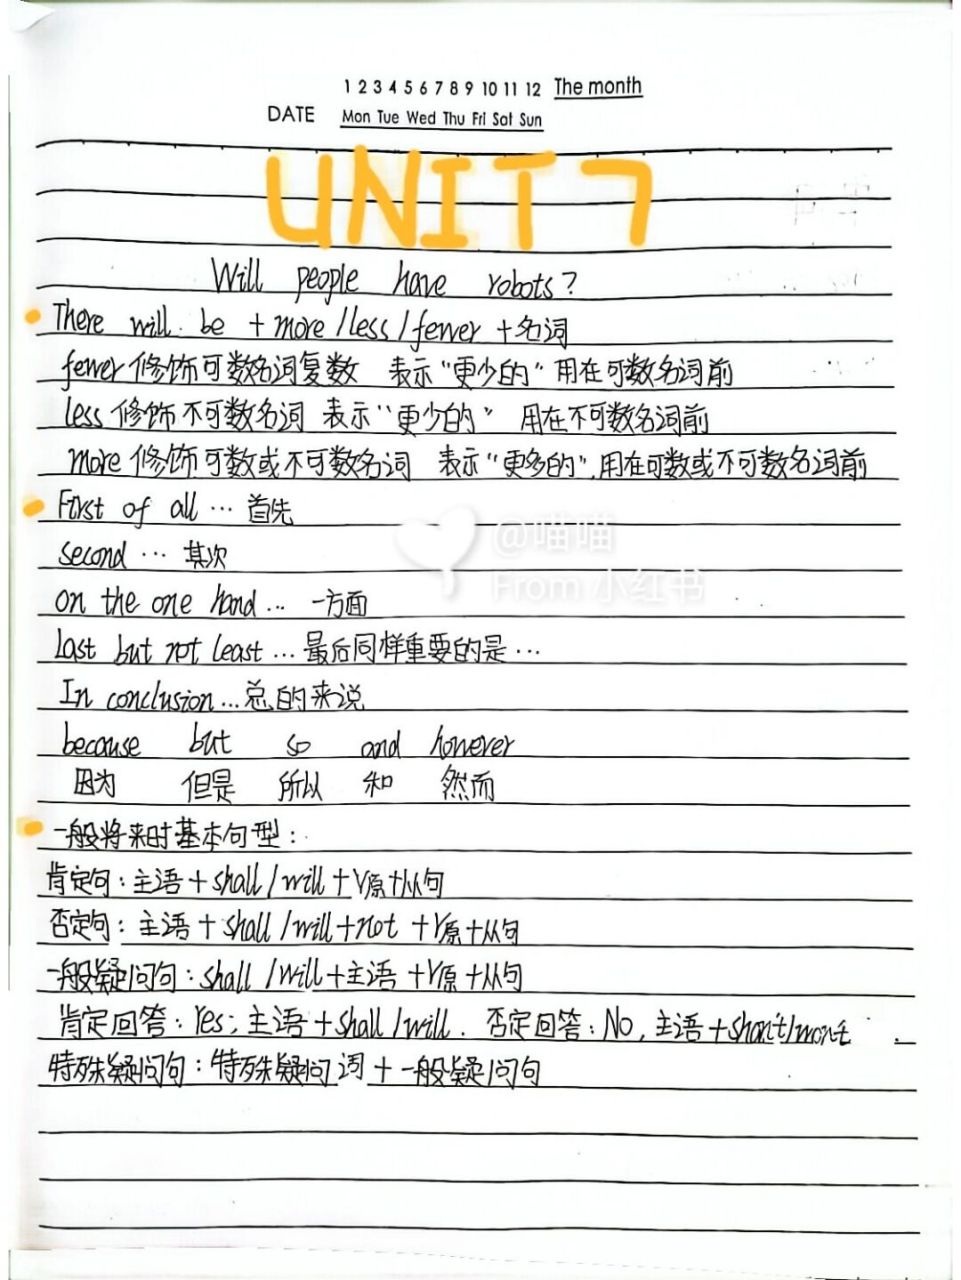 1 2 3 4 5 6 7 8 9 10 11 12 The month
DATE Mon Tue Wed Thu Fri Sat Sun
UNIT 7
Will people have robots?
There will be + more / less / fewer + 名词
fewer 修饰可数名词复数 表示“更少的”用在可数名词前
less 修饰不可数名词 表示“更少的” 用在不可数名词前
more 修饰可数或不可数名词 表示“更多的”,用在可数或不可数名词前
First of all … 首先
second … 其次
on the one hand … 一方面
Last but not least … 最后同样重要的是 …
In conclusion … 总的来说
because but so and however
因为 但是 所以 和 然而
一般将来时基本句型:
肯定句:主语 + shall / will + V原 + 从句
否定句:主语 + shall / will + not + V原 + 从句
一般疑问句:shall / will + 主语 + V原 + 从句
肯定回答:Yes, 主语 + shall / will. 否定回答:No, 主语 + shan't / won't.
特殊疑问句:特殊疑问词 + 一般疑问句
@喵喵
From 小红书